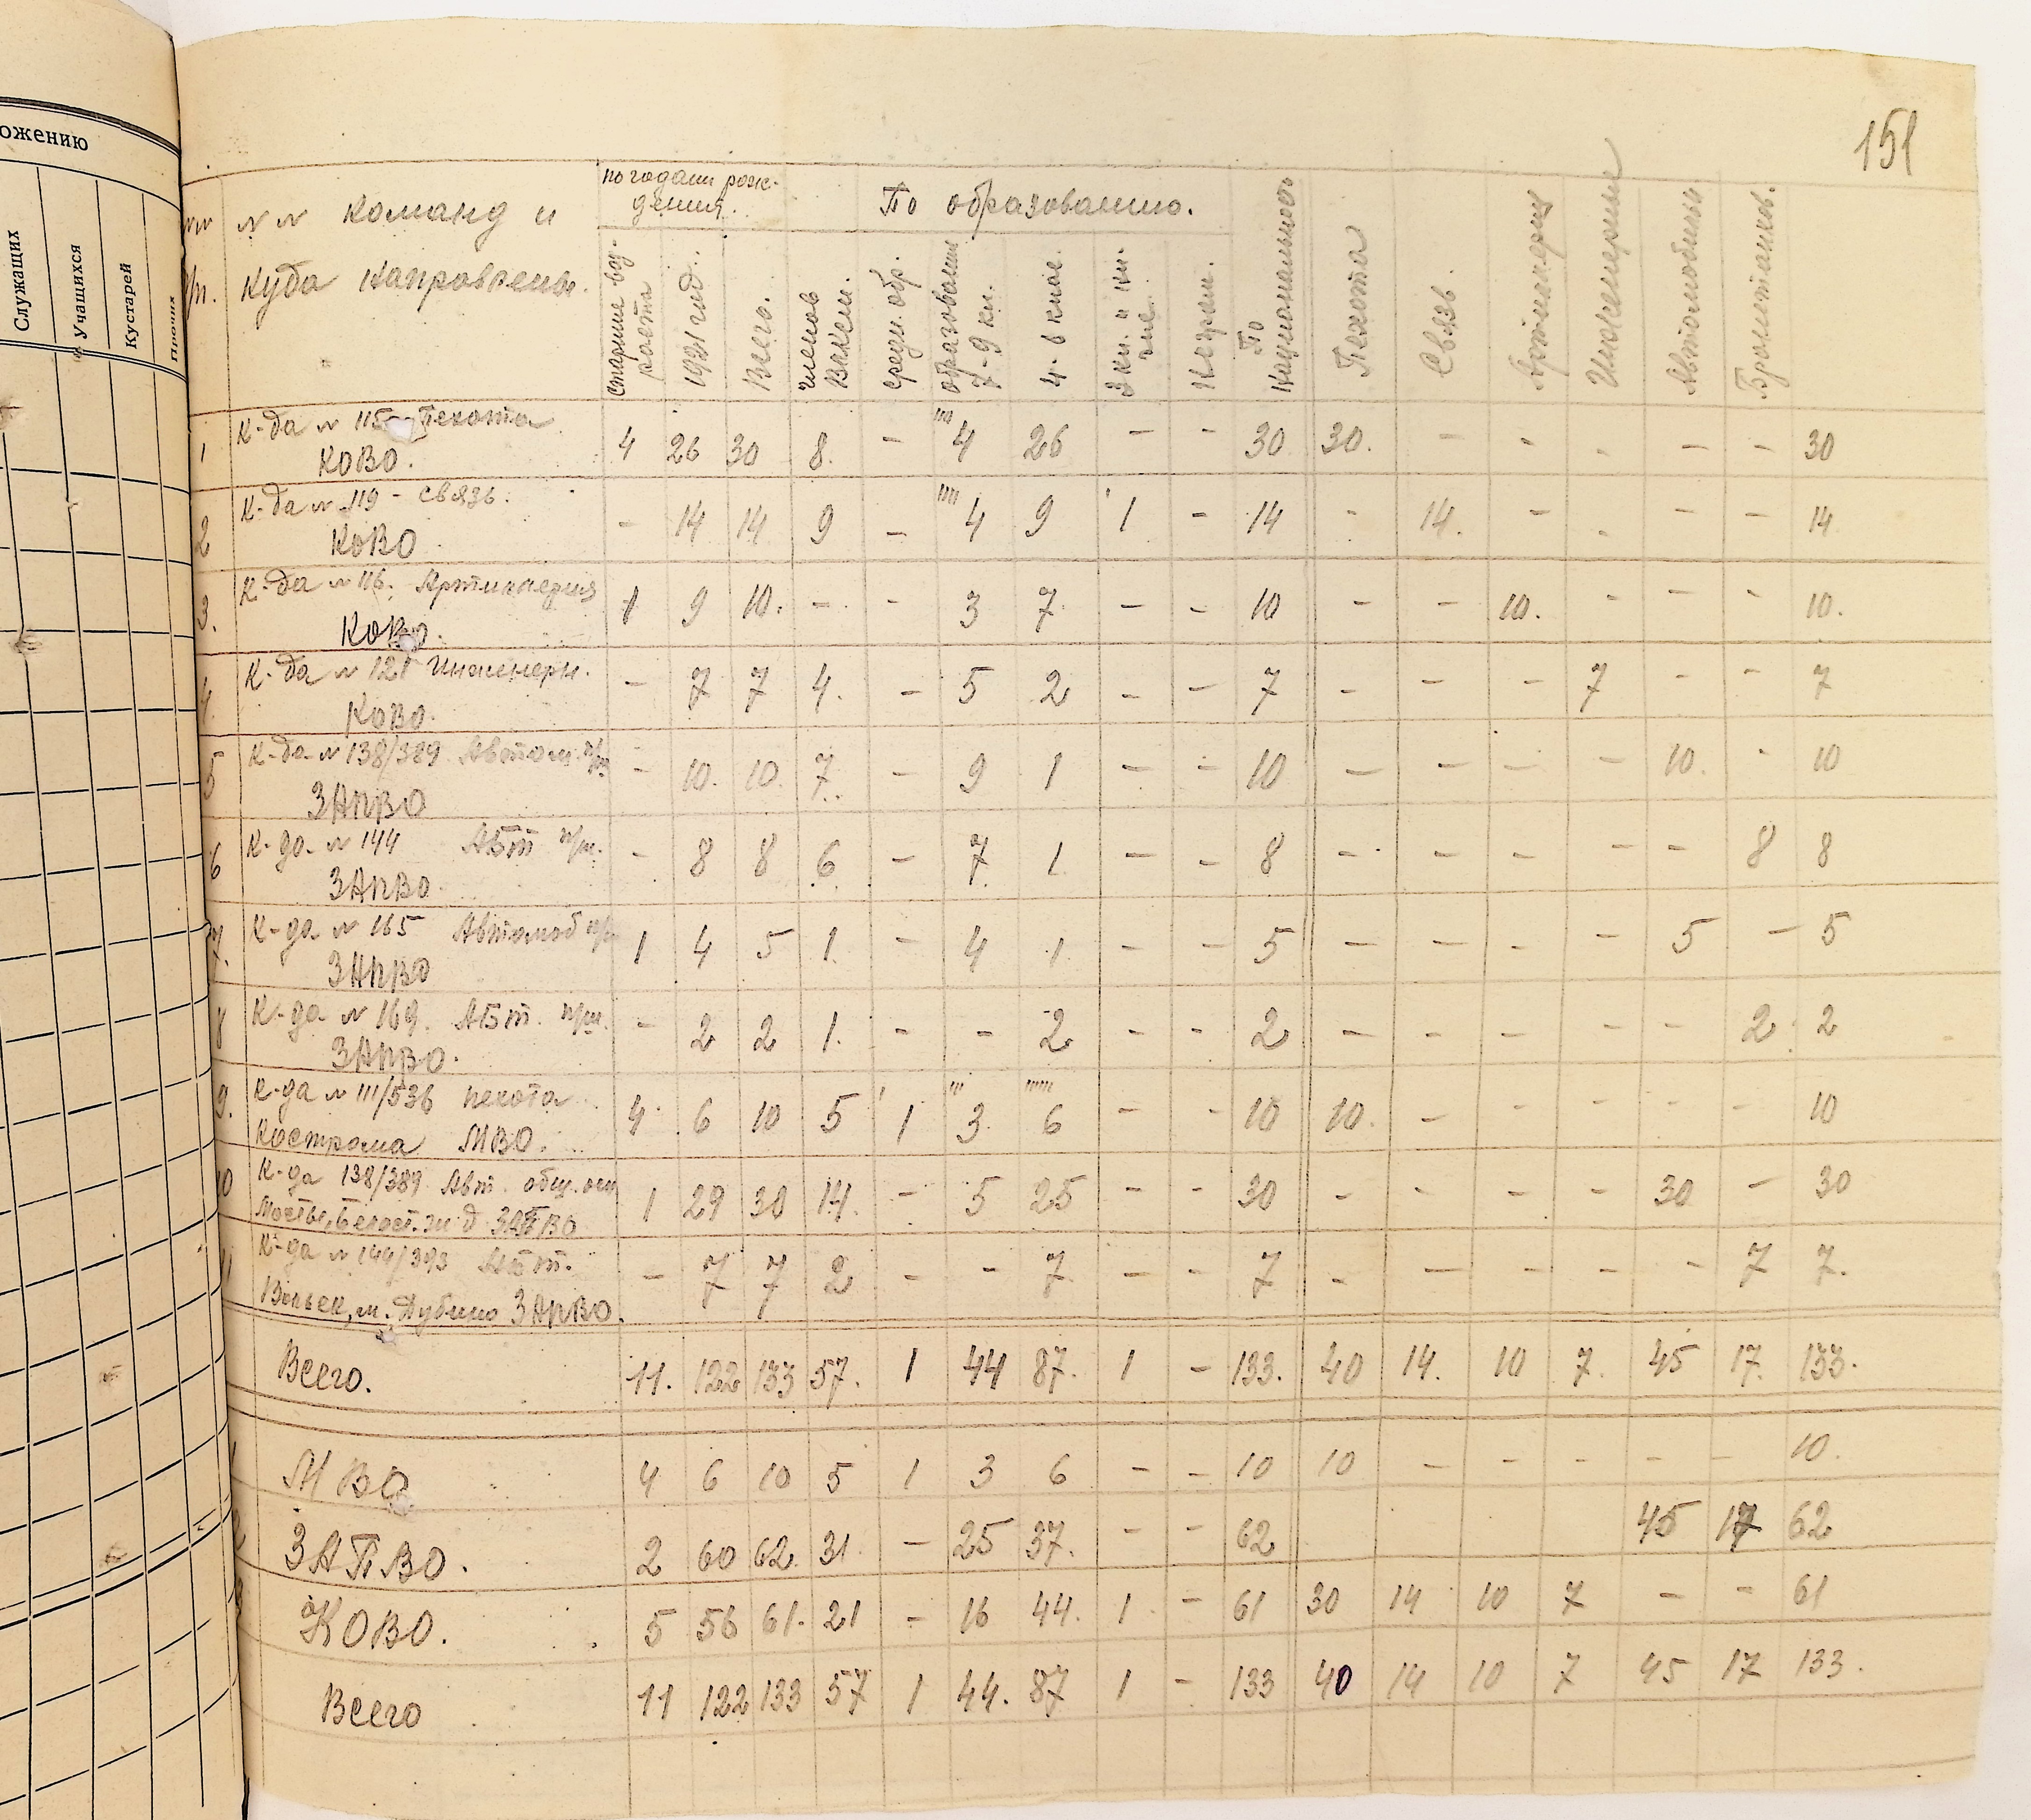 ожению
Служащих
Учащихся
Кустарей
Прочих
151
№№ команд и
куда направлены.
по годам рож-
дения.
Старшие воз-
раста
1921 год.
Всего.
членов
Влксм.
По образованию.
средн. обр.
образование
7-9 кл.
4-6 клас.
3 кл. и ни-
же.
Неграм.
По
национальность
Пехота
Связь
Артиллерия
Инженерны
Автомобильн
Бронетанков.
1 К-да № 115 - Пехота КОВО. 4 26 30 8. - 4 26 - - 30 30. - - . - - 30
2 К-да № 119 - Связь. КОВО - 14 14 9 - 4 9 1 - 14 - 14. - . - - 14
3. К-да № 116. Артиллерия КОВО. 1 9 10. - - 3 7. - - 10 - - 10. - - - 10.
4. К-да № 121 Инженерн. КОВО. - 7 7 4. - 5 2 - - 7 - - - 7 - - 7
5 К-да № 138/389 Автом. ЗАПВО - 10. 10. 7. - 9 1 - - 10 - - - - 10. - 10
6 К-да № 144 АБТ ЗАПВО. - 8 8 6. - 7. 1. - - 8 - - - - - 8 8
7. К-да № 165 Автомоб ЗАПВО 1 4 5 1. - 4 1. - - 5 - - - - 5 - 5
8 К-да № 169. АБТ. ЗАПВО. - 2 2 1. - - 2 - - 2 - - - - - 2 2
9. К-да № 111/536 пехота Кострома МВО. 4. 6 10 5 1 3. 6 - - 10 10. - - - - - 10
10 К-да 138/389 Авт. ЗАПВО 1 29 30 14. - 5 25 - - 30 - - - - 30 - 30
11 К-да № 144/393 АБТ. ЗАПВО. - 7 7 2 - - 7. - - 7 - - - - - 7 7.
Всего. 11. 122 133 57. 1 44 87. 1 - 133. 40 14. 10 7. 45 17. 133.
1 МВО 4 6 10 5 1 3 6 - - 10 10 - - - - - 10.
2 ЗАПВО. 2 60 62. 31. - 25 37. - - 62 45 17 62
3 КОВО. 5 56 61. 21 - 16 44. 1. - 61 30 14 10 7 - - 61
Всего 11 122 133 57 1 44. 87 1 - 133 40 14 10 7 45 17 133.